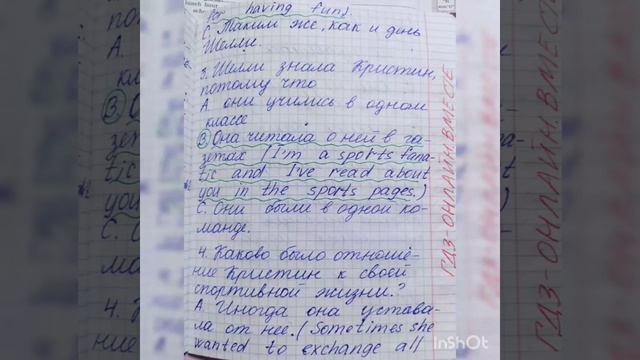 for having fun).
С. Таким же, как и день
Шелли.
3. Шелли знала Кристин,
потому что
А. они учились в одном
классе
В Она читала о ней в га-
зетах (I'm a sports fana-
tic and I've read about
you in the sports pages.)
С. Они были в одной ко-
манде.
4. Каково было отноше-
ние Кристин к своей
спортивной жизни?
А. Иногда она устава-
ла от нее. (Sometimes she
wanted to exchange all
ГДЗ-ОНЛАЙН.ВМЕСТЕ
InShOt